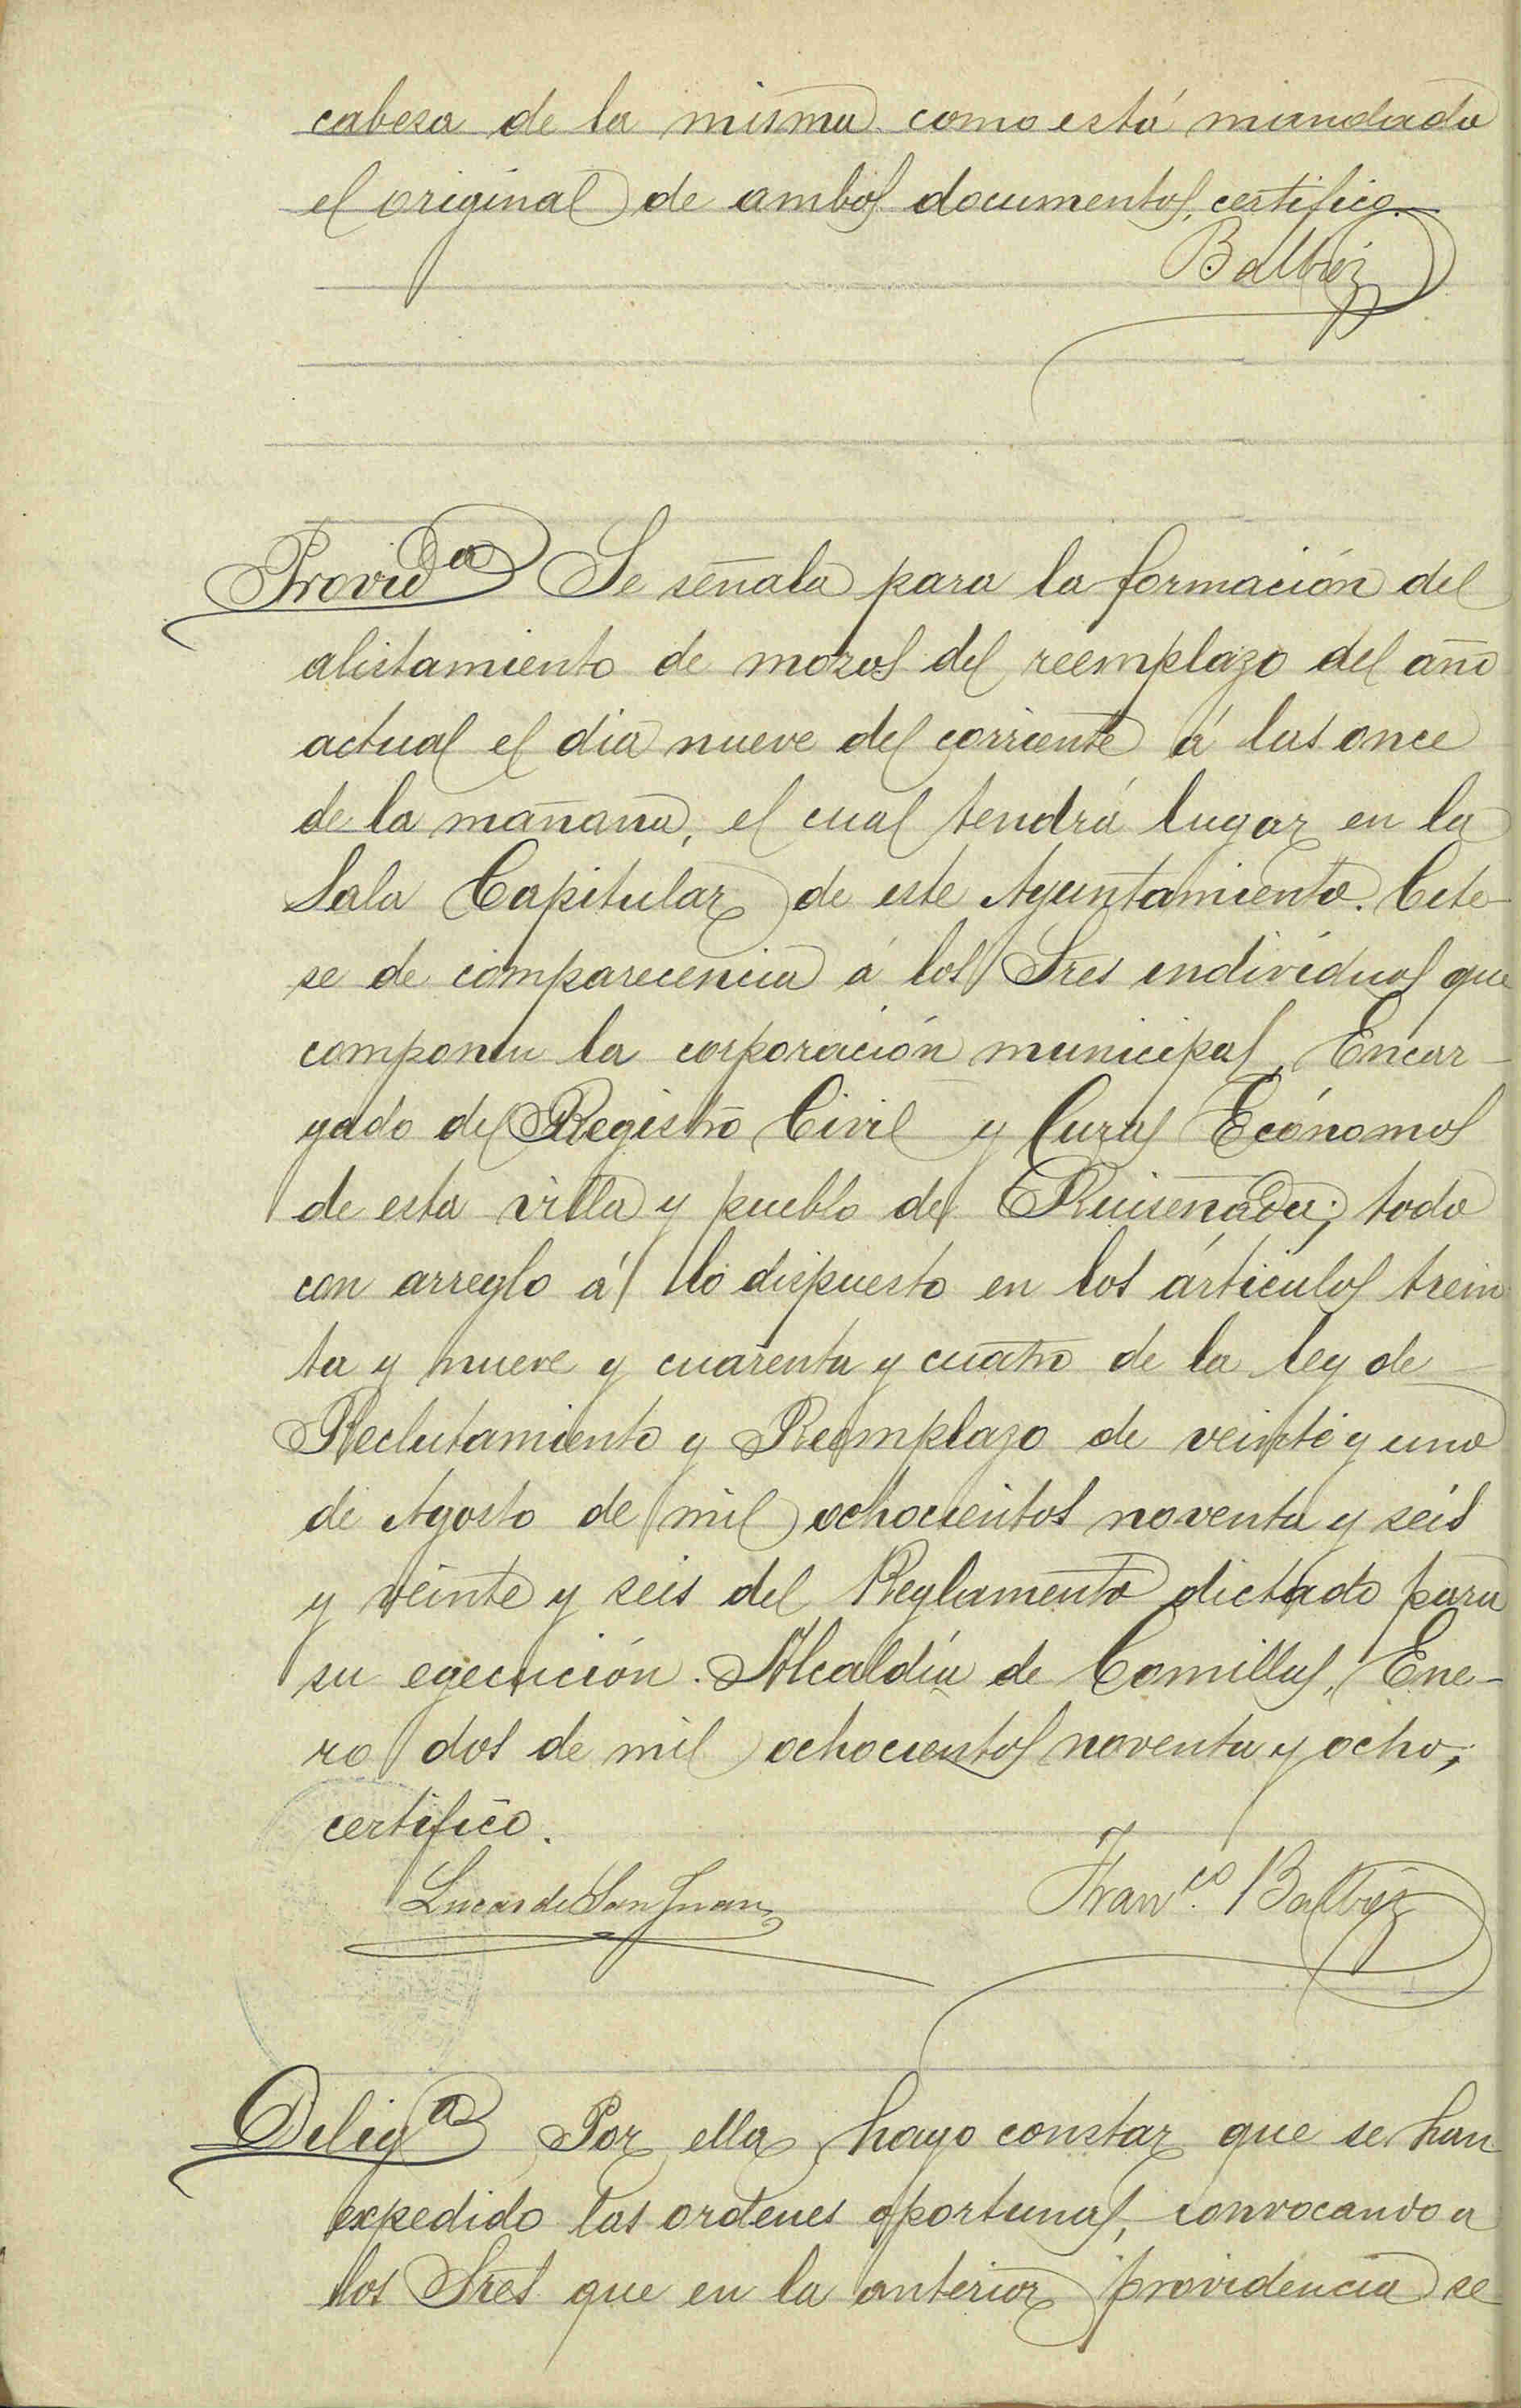 cabeza de la misma como está mandado
el original de ambos documentos, certifico.
Balbiz
Provid.a Se señala para la formación del
alistamiento de mozos del reemplazo del año
actual el dia nueve del corriente á las once
de la mañana, el cual tendrá lugar en la
Sala Capitular de este Ayuntamiento. Cite-
se de comparecencia á los Sres individuos que
componen la corporación municipal, Encar-
gado del Registro Civil y Curas Ecónomos
de esta villa y pueblo de Ruiseñada; todo
con arreglo á lo dispuesto en los artículos trein
ta y nueve y cuarenta y cuatro de la ley de
Reclutamiento y Reemplazo de veinte y uno
de Agosto de mil ochocientos noventa y seis
y veinte y seis del Reglamento dictado para
su egecución. Alcaldía de Comillas, Ene-
ro dos de mil ochocientos noventa y ocho,
certifico.
Lucas de San Juan Fran.co Balbiz
Dilig.a Por ella hago constar que se han
expedido las ordenes oportunas, convocando a
los Sres que en la anterior providencia se